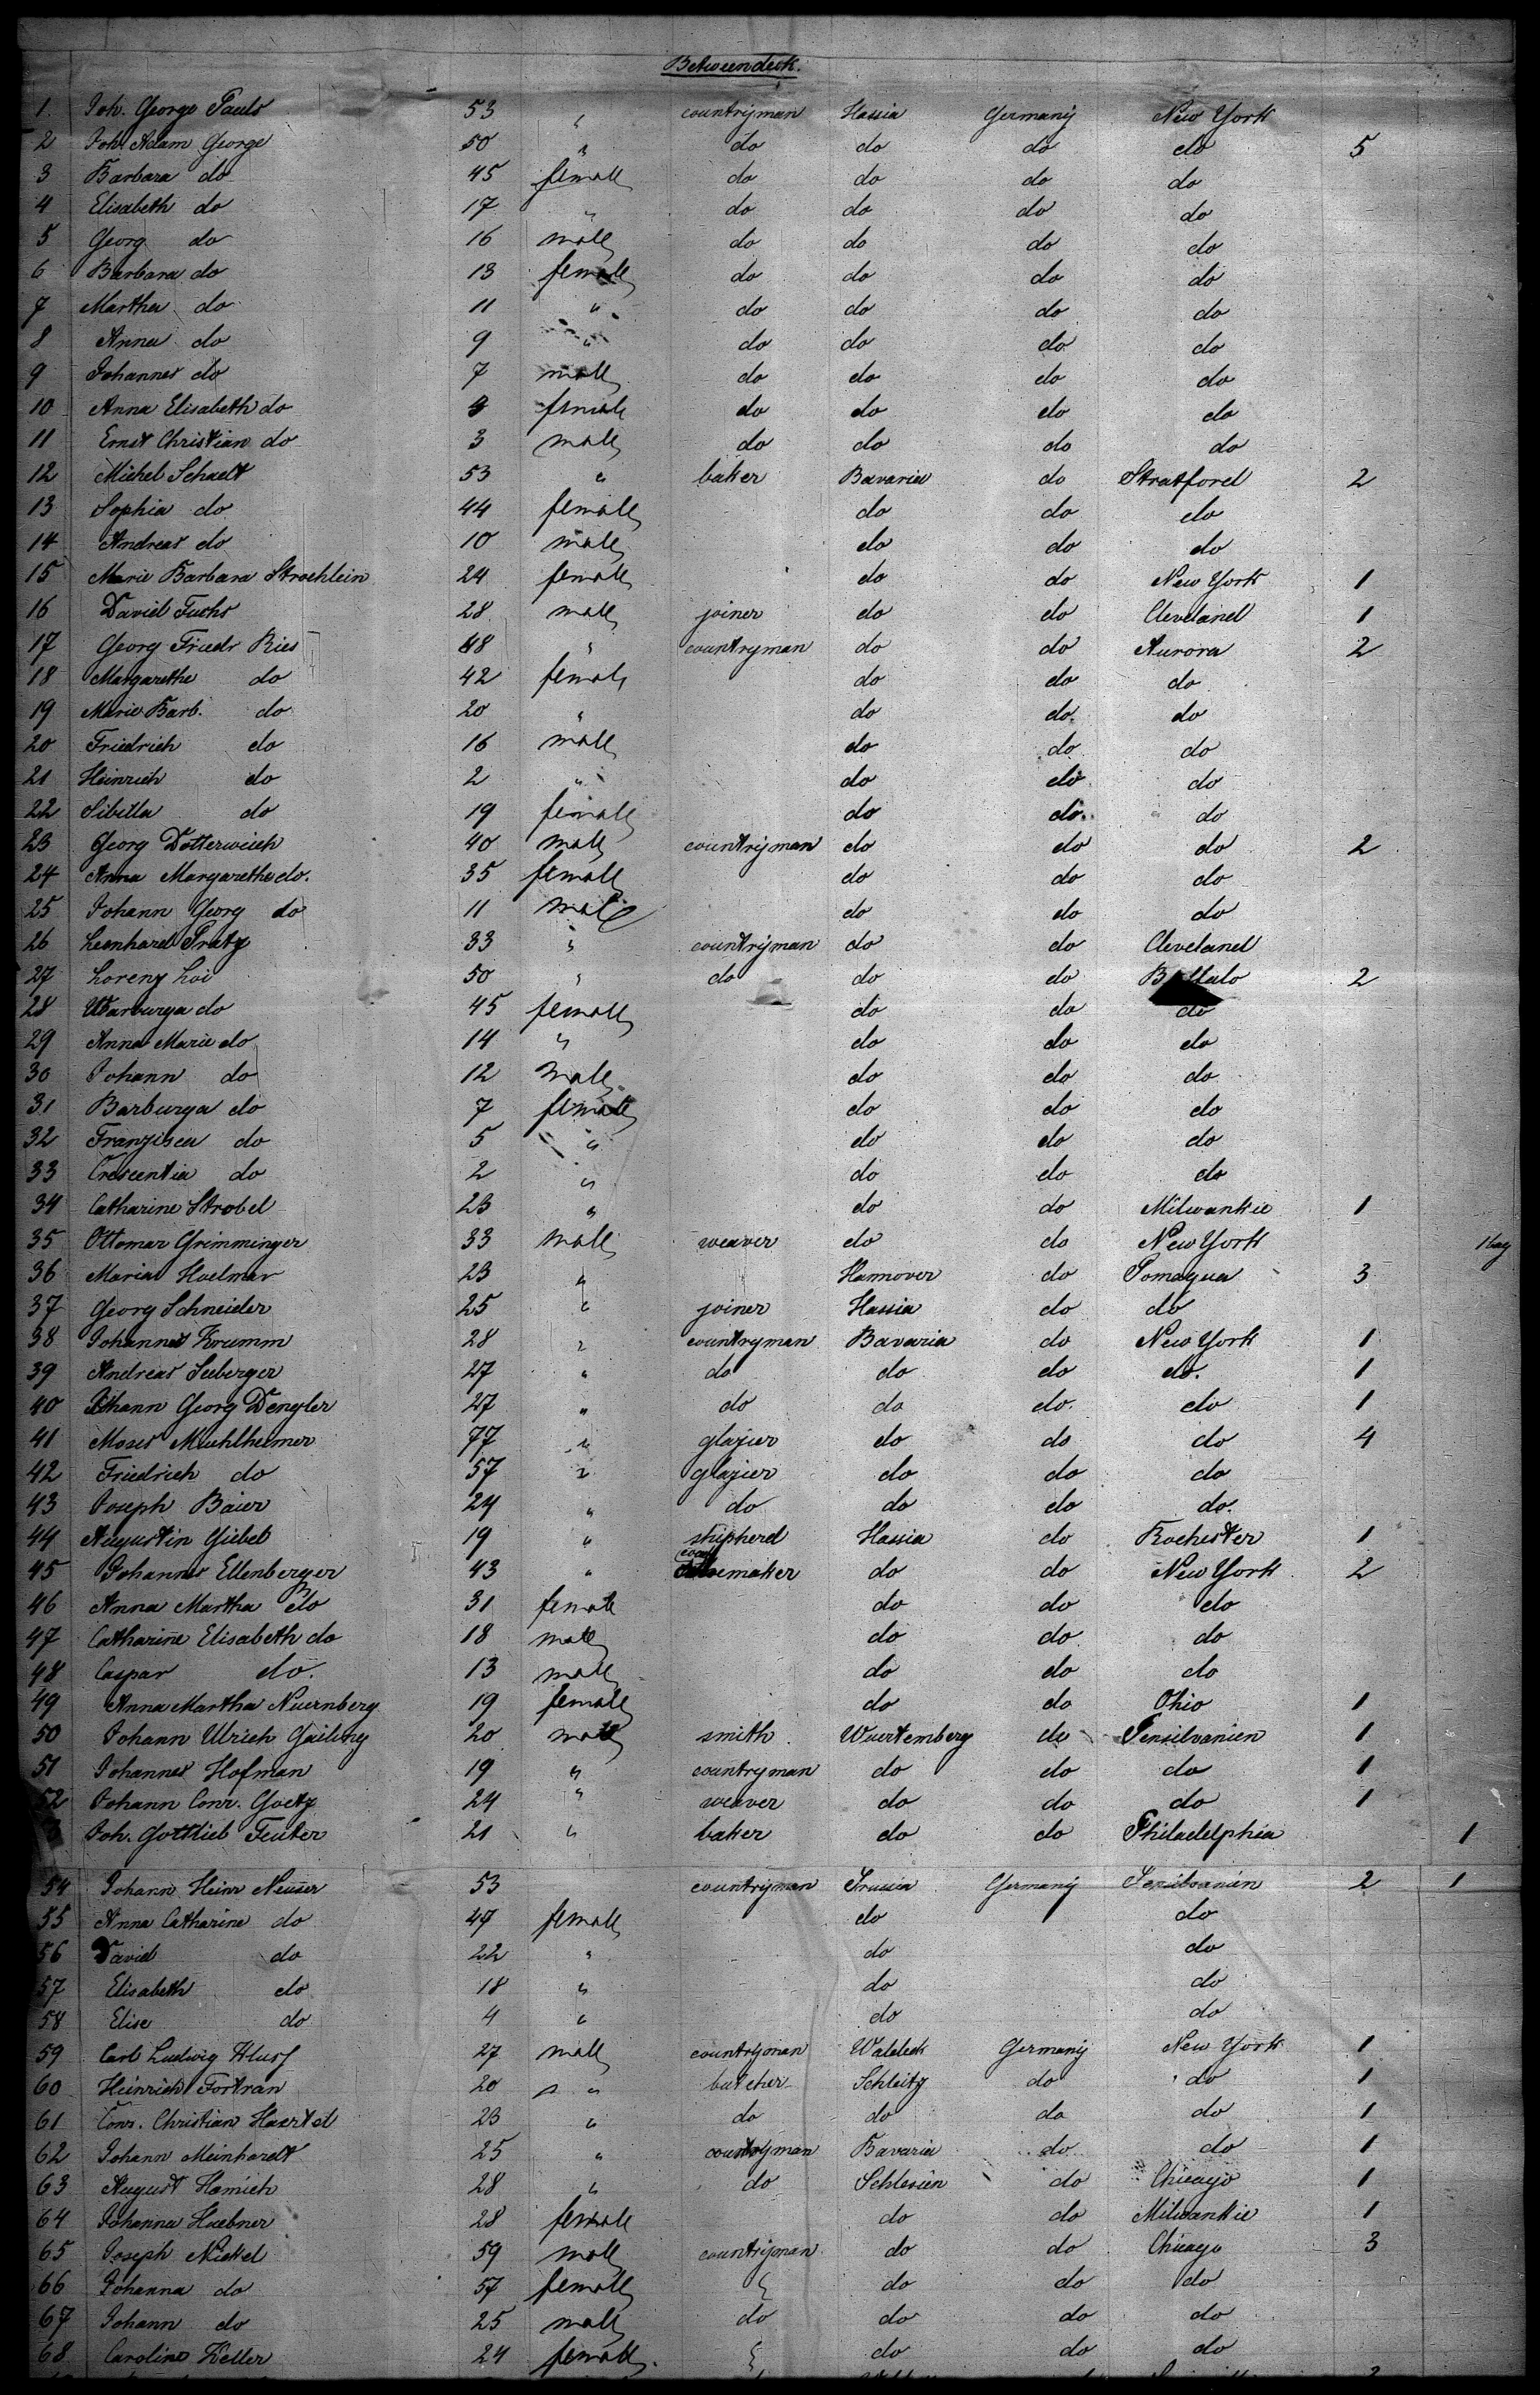 Betweendeck.
1 Joh. George Pauls 53 " countryman Hassia Germany New York
2 Joh. Adam George 50 " do do do do 5
3 Barbara do 45 female do do do do
4 Elisabeth do 17 " do do do do
5 Georg do 16 male do do do do
6 Barbara do 13 female do do do do
7 Martha do 11 " do do do do
8 Anna do 9 " do do do do
9 Johannes do 7 male do do do do
10 Anna Elisabeth do female do do do do
11 Ernst Christian do 3 male do do do do
12 Michel Schaelt 53 " baker Bavaria do Stratford 2
13 Sophia do 44 female do do do
14 Andreas do 10 male do do do
15 Marie Barbara Stroehlein 24 female do do New York 1
16 David Fuchs 28 male joiner do do Cleveland 1
17 Georg Friedr Ries 48 " countryman do do Aurora 2
18 Margarethe do 42 female do do do
19 Marie Barb. do 20 " do do do
20 Friedrich do 16 male do do do
21 Heinrich do 2 " do do do
22 Sibilla do 19 female do do do
23 Georg Dotterweich 40 male countryman do do do 2
24 Anna Margarethe do. 35 female do do do
25 Johann Georg do 11 male do do do
26 Leonhard Pratz 33 " countryman do do Cleveland
27 Lorenz Loi 50 " do do do 2
28 Warburga do 45 female do do do
29 Anna Marie do 14 " do do do
30 Johann do 12 male do do do
31 Barburga do 7 female do do do
32 Franzisca do 5 " do do do
33 Crescentia do 2 " do do do
34 Catharine Strobel 23 " do do Milwankie 1
35 Ottomar Grimminger 33 male weaver do do New York
36 Maria Hoelmar 23 " Hannover do Pomaqua 3
37 Georg Schneider 25 " joiner Hassia do do
38 Johannes Krumm 28 " countryman Bavaria do New York 1
39 Andreas Seeberger 27 " do do do do. 1
40 Johann Georg Dengler 27 " do do do do 1
41 Moses Muehlheimer 77 " glazier do do do 4
42 Friedrich do 57 " glazier do do do
43 Joseph Baier 24 " do do do do.
44 Augustin Giebel 19 " shepherd Hassia do Rochester 1
45 Johannes Ellenberger 43 " do do New York 2
46 Anna Martha do 31 female do do do
47 Catharine Elisabeth do 18 male do do do
48 Caspar do. 13 male do do do
49 Anna Martha Nuernberg 19 female do do Ohio 1
50 Johann Ulrich Gailing 20 male smith Wuertemberg do Pensilvanien 1
51 Johannes Hofman 19 " countryman do do do 1
52 Johann Conr. Goetz 24 " weaver do do do 1
Joh. Gottlieb Teuber 21 " baker do do Philadelphia 1
54 Johann Heinr Neuser 53 countryman Prussia Germany Pensilvanien 2 1
55 Anna Catharine do 47 female do do
56 David do 22 " do do
57 Elisabeth do 18 " do do
58 Elise do 4 " do do
59 Carl Ludwig 27 male countryman Waldeck Germany New York 1
60 Heinrich Fortran 20 " butcher Schleitz do do 1
61 Conr. Christian Haertel 23 " do do do do 1
62 Johann Meinhardt 25 " countryman Bavaria do do 1
63 August Hamich 28 " do Schlesien do Chicago 1
64 Johanna Huebner 28 female do do Milwankie 1
65 Joseph Nickel 59 male countryman do do Chicago 3
66 Johanna do 57 female do do do
67 Johann do 25 male do do do do
68 Caroline Keller 24 female do do do